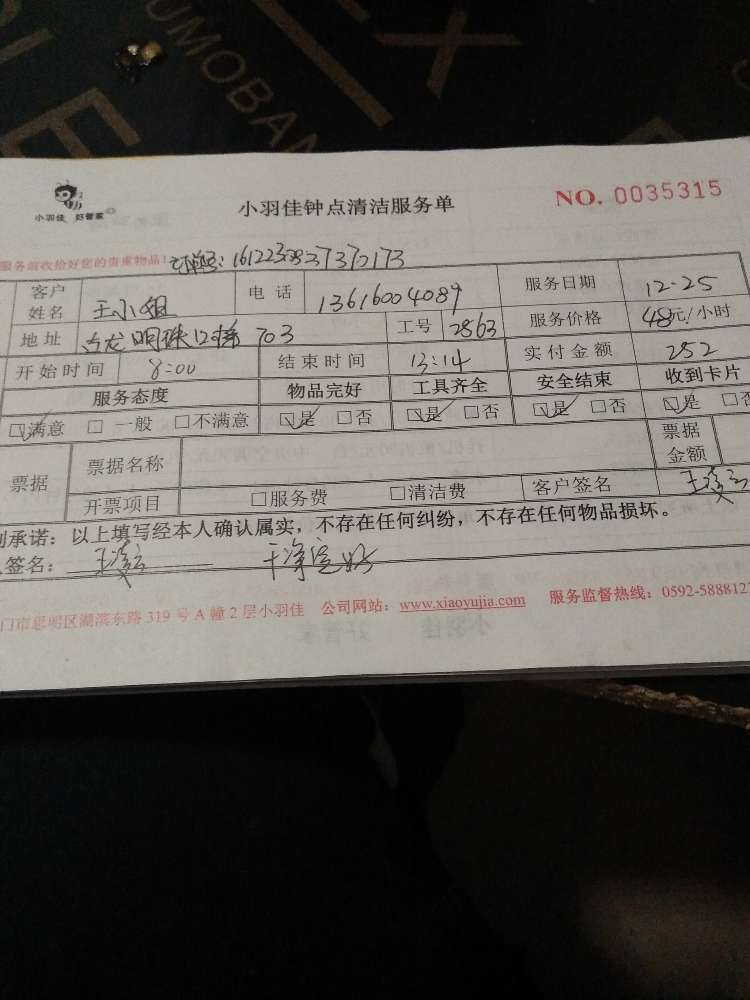 UMOBAN
小羽佳 好管家
小羽佳钟点清洁服务单
NO. 0035315
服务前收拾好您的贵重物品!
订单号: 16122308237370173
客户姓名 王小姐 电话 13616004089 服务日期 12-25
地址 明珠12梯703 工号 2863 服务价格 48元/小时
开始时间 8:00 结束时间 13:14 实付金额 252
服务态度 物品完好 工具齐全 安全结束 收到卡片
☑满意 □一般 □不满意 ☑是 □否 ☑是 □否 ☑是 □否 ☑是 □否
票据 票据名称 票据金额
开票项目 □服务费 □清洁费 客户签名
承诺:以上填写经本人确认属实,不存在任何纠纷,不存在任何物品损坏。
签名:
门市思明区湖滨东路 319 号 A 幢 2 层小羽佳 公司网站:www.xiaoyujia.com 服务监督热线:0592-588812